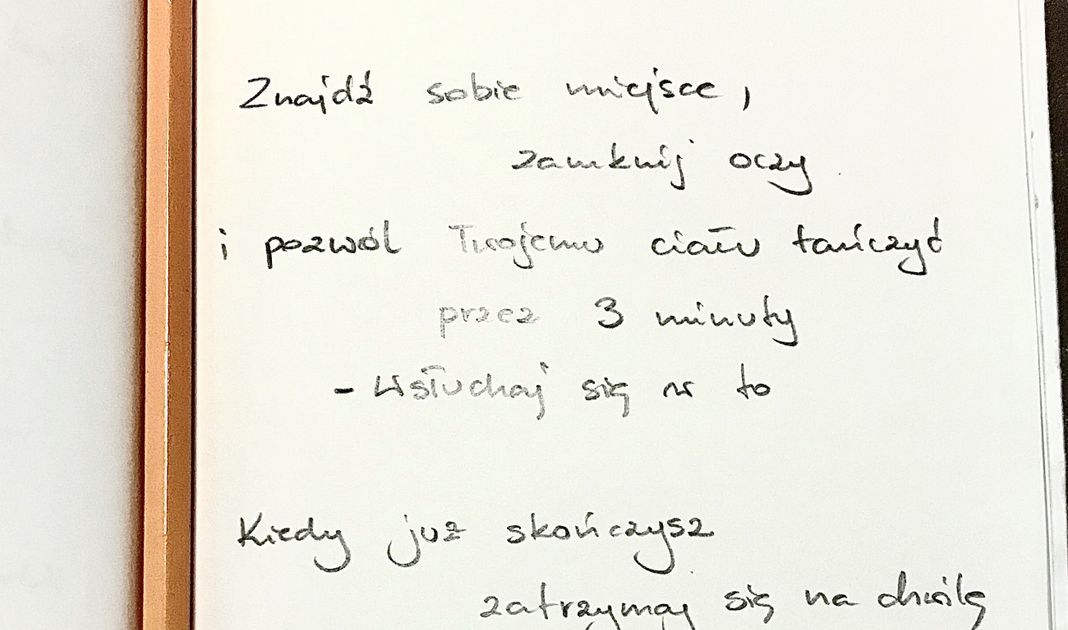 Znajdź sobie miejsce,
zamknij oczy
i pozwól Twojemu ciału tańczyć
przez 3 minuty
- Wsłuchaj się w to
Kiedy już skończysz
zatrzymaj się na chwilę